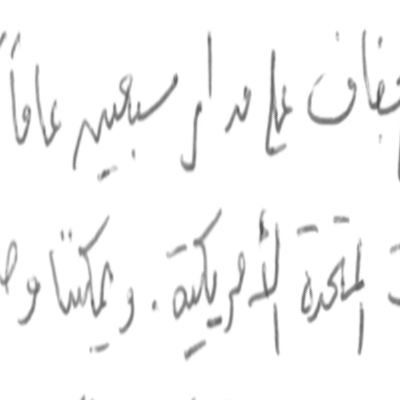 جفاف على مدار سبعين عاماً
المتحدة الأمريكية. ويمكننا